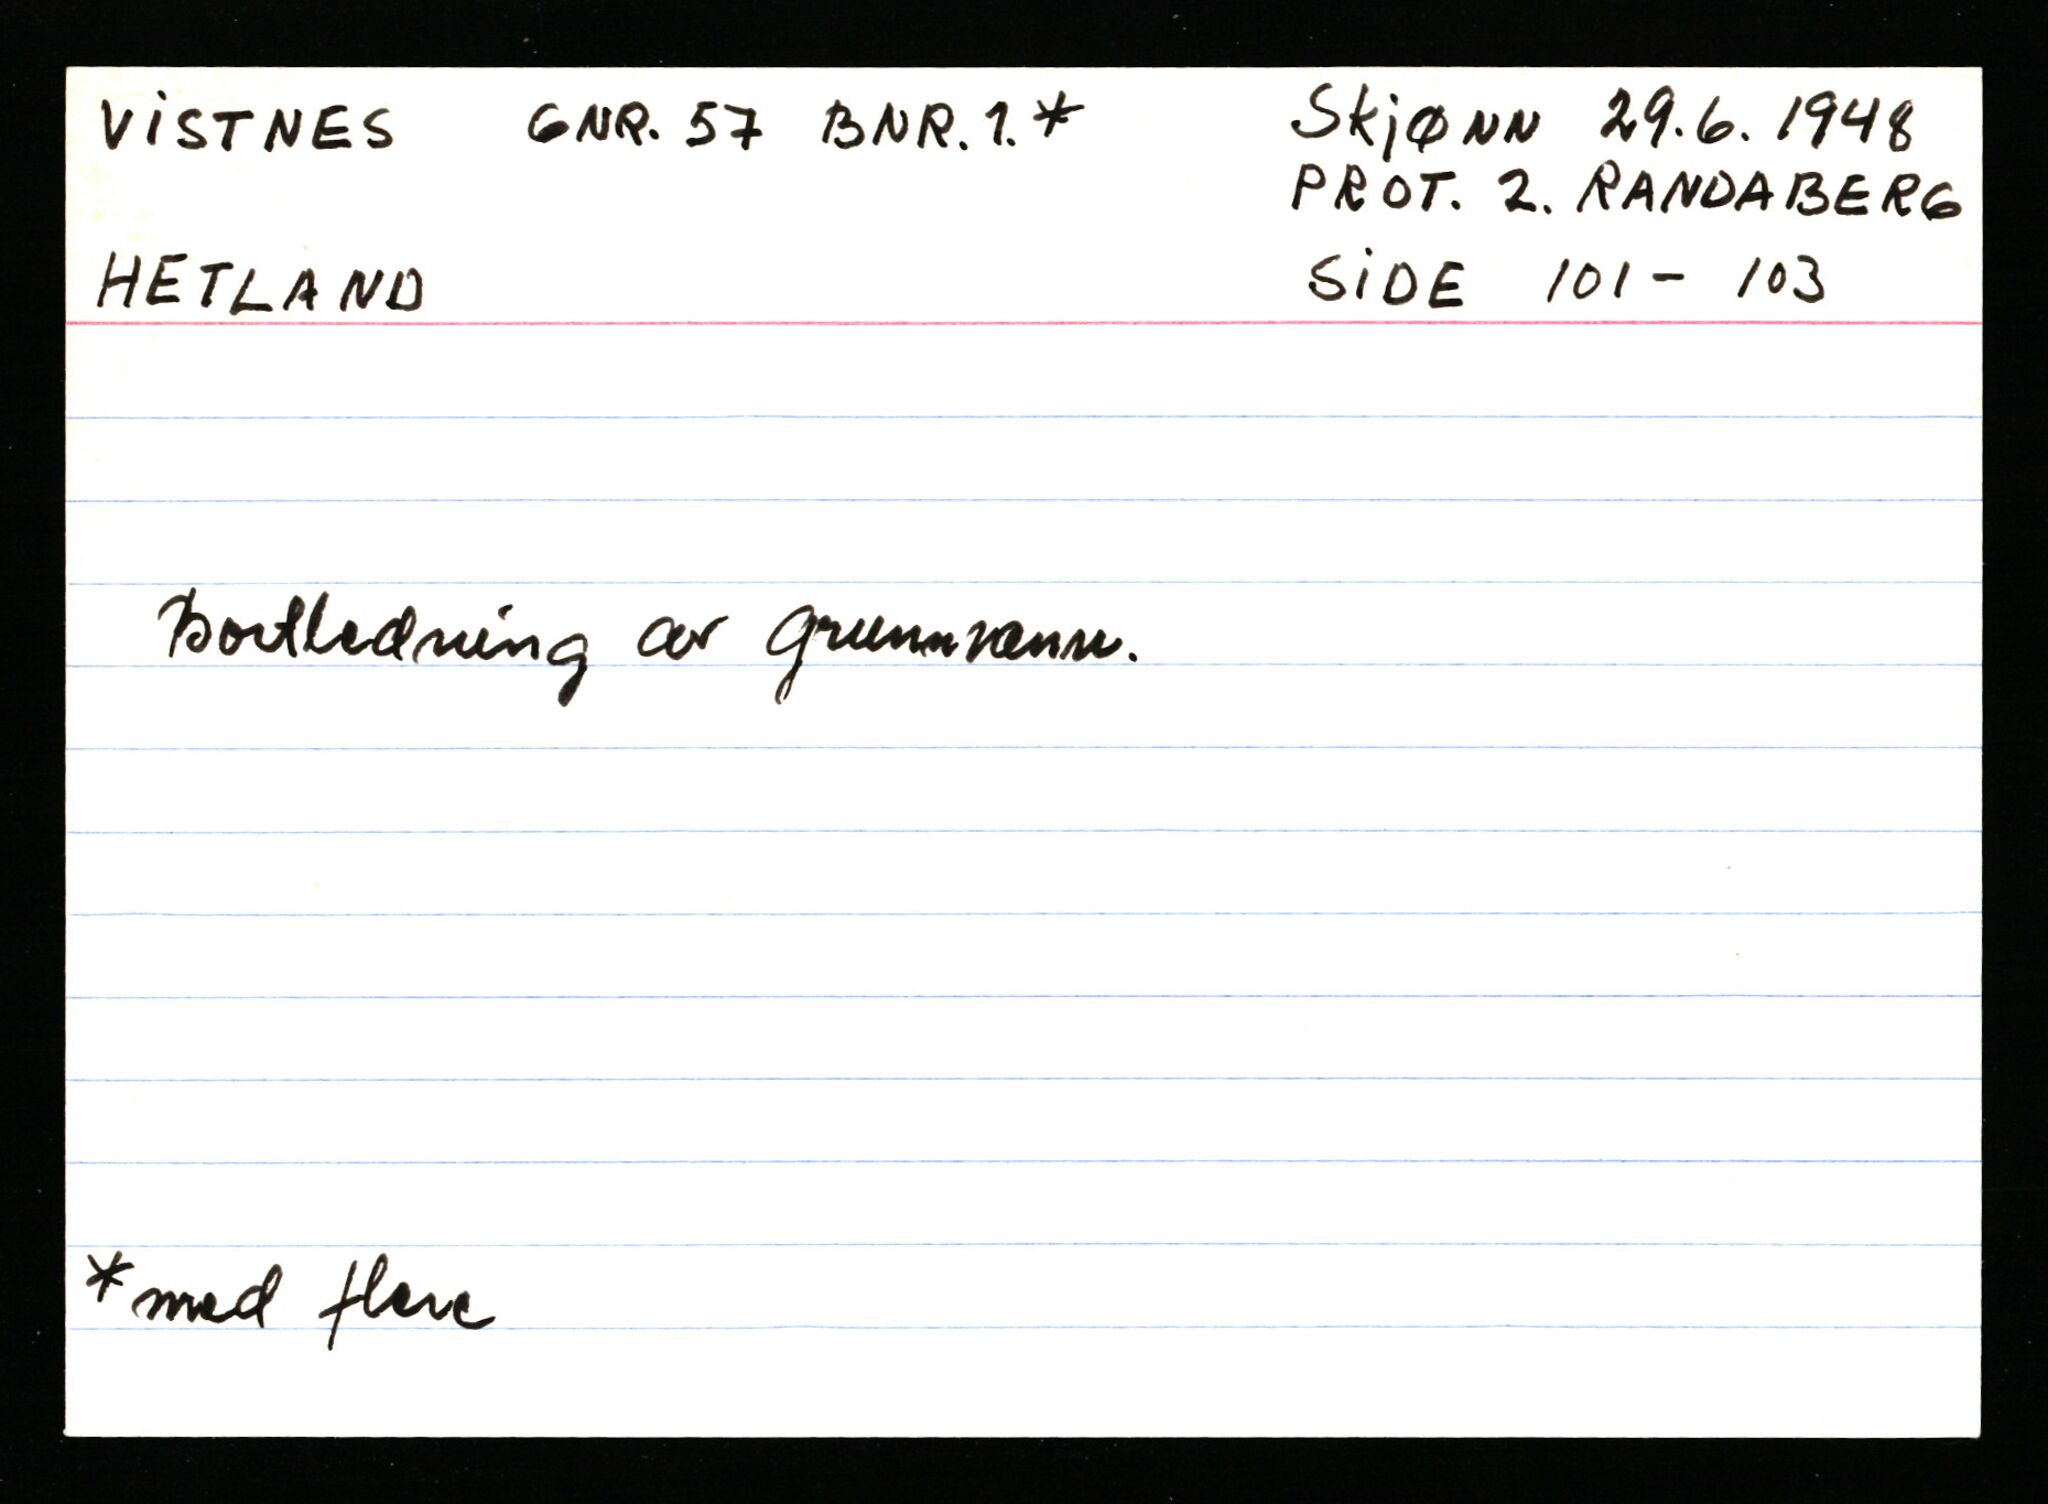 VISTNES GNR. 57 BNR. 1.* Skjønn 29.6.1948
PROT. 2. RANDABERG
HETLAND SIDE 101 - 103
Bortledning av grunnvann.
*med flere